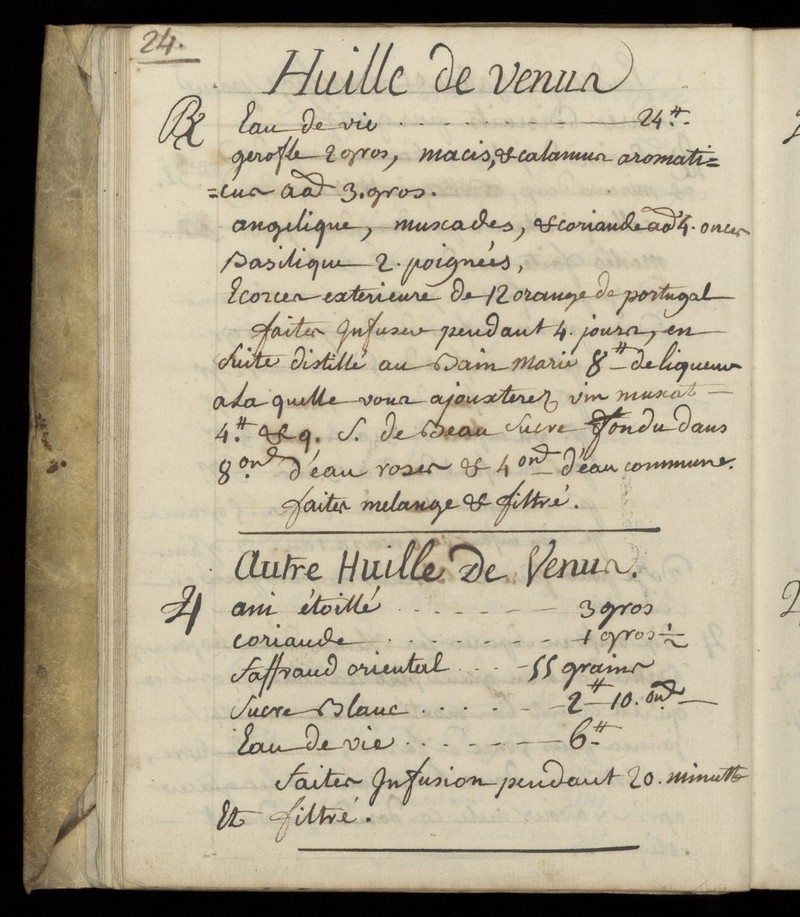 24.
Huille de venus
Rx Eau de vie . . . . . 24 ℔.
gerofle 2 gros, macis, & calamus aromati=
=cus aad 3. gros.
angelique, muscades, & coriande aad 4. onces
Basilique 2. poignées,
Ecorces exterieure de 12 orange de portugal
faites Infuser pendant 4. jours, en
suite distillé au Bain marie 8 ℔ de liqueur
a La quelle vous ajouxterez vin muscat
4 ℔. & q. S. de Beau sucre fondu dans
8 onc. d'éau roses & 4 onc. d'éau commune.
faites melange & filtré.
autre Huille De Venus.
♃ ani étoillé . . . . . 3 gros
coriande . . . . . 1 gros ½
Saffraud oriental . . . 55 grains
Sucre Blanc . . . . . 2 ℔ 10. onc.
Eau de vie . . . . . 6 ℔
faites Infusion pendant 20. minutte
Et filtré.